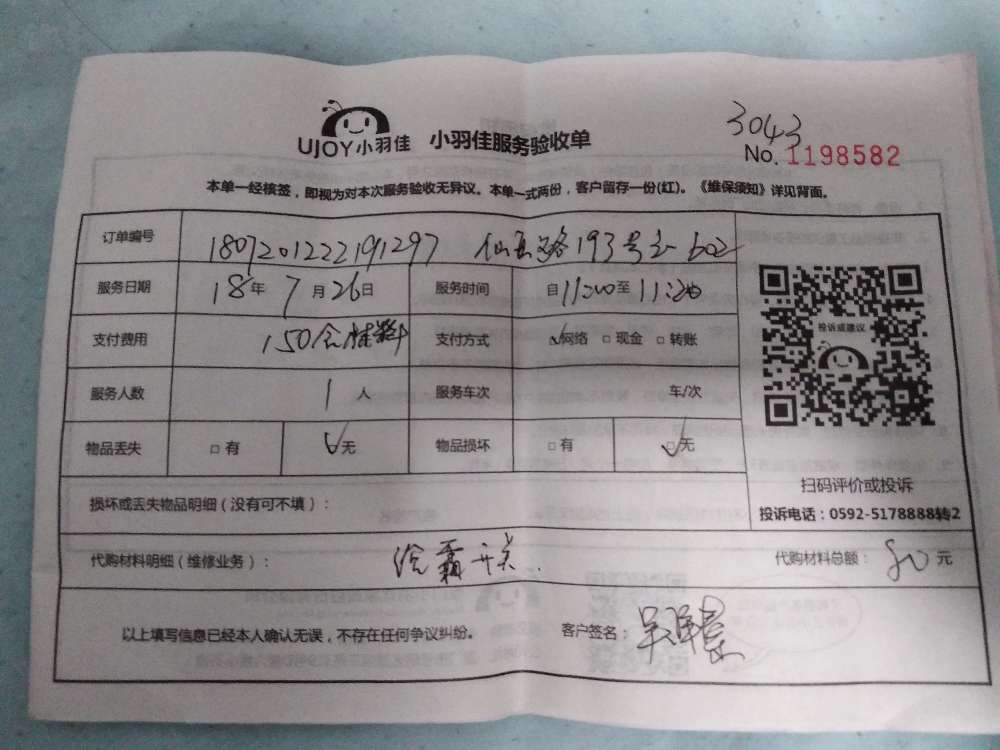 3043
UJOY小羽佳 小羽佳服务验收单
No. 1198582
本单一经核签，即视为对本次服务验收无异议。本单一式两份，客户留存一份(红)。《维保须知》详见背面。
订单编号 1807201222191297 仙岳路193号之一602
服务日期 18年7月26日 服务时间 自11:00至11:20
支付费用 150含材料 支付方式 网络 □现金 □转账
服务人数 1人 服务车次 车/次
物品丢失 □有 √无 物品损坏 □有 √无
投诉或建议
扫码评价或投诉
投诉电话：0592-5178888转2
损坏或丢失物品明细（没有可不填）：
代购材料明细（维修业务）： 浴霸开关. 代购材料总额：80元
以上填写信息已经本人确认无误，不存在任何争议纠纷。 客户签名：